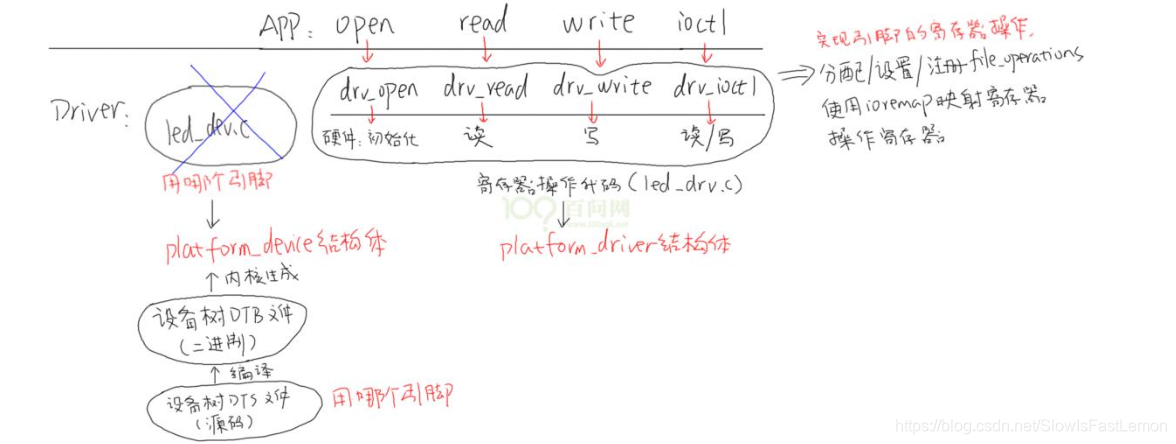 APP: open read write ioctl
实现引脚的寄存器操作.
分配/设置/注册file_operations
使用ioremap映射寄存器
操作寄存器
Driver:
led_dev.c
drv_open drv_read drv_write drv_ioctl
硬件:初始化 读 写 读/写
用哪个引脚
寄存器操作代码(led_drv.c)
100 百问网
www.100ask.net
platform_device结构体
platform_driver结构体
内核生成
设备树DTB文件
(二进制)
编译
设备树DTS文件
(源码)
用哪个引脚
https://blog.csdn.net/SlowIsFastLemon